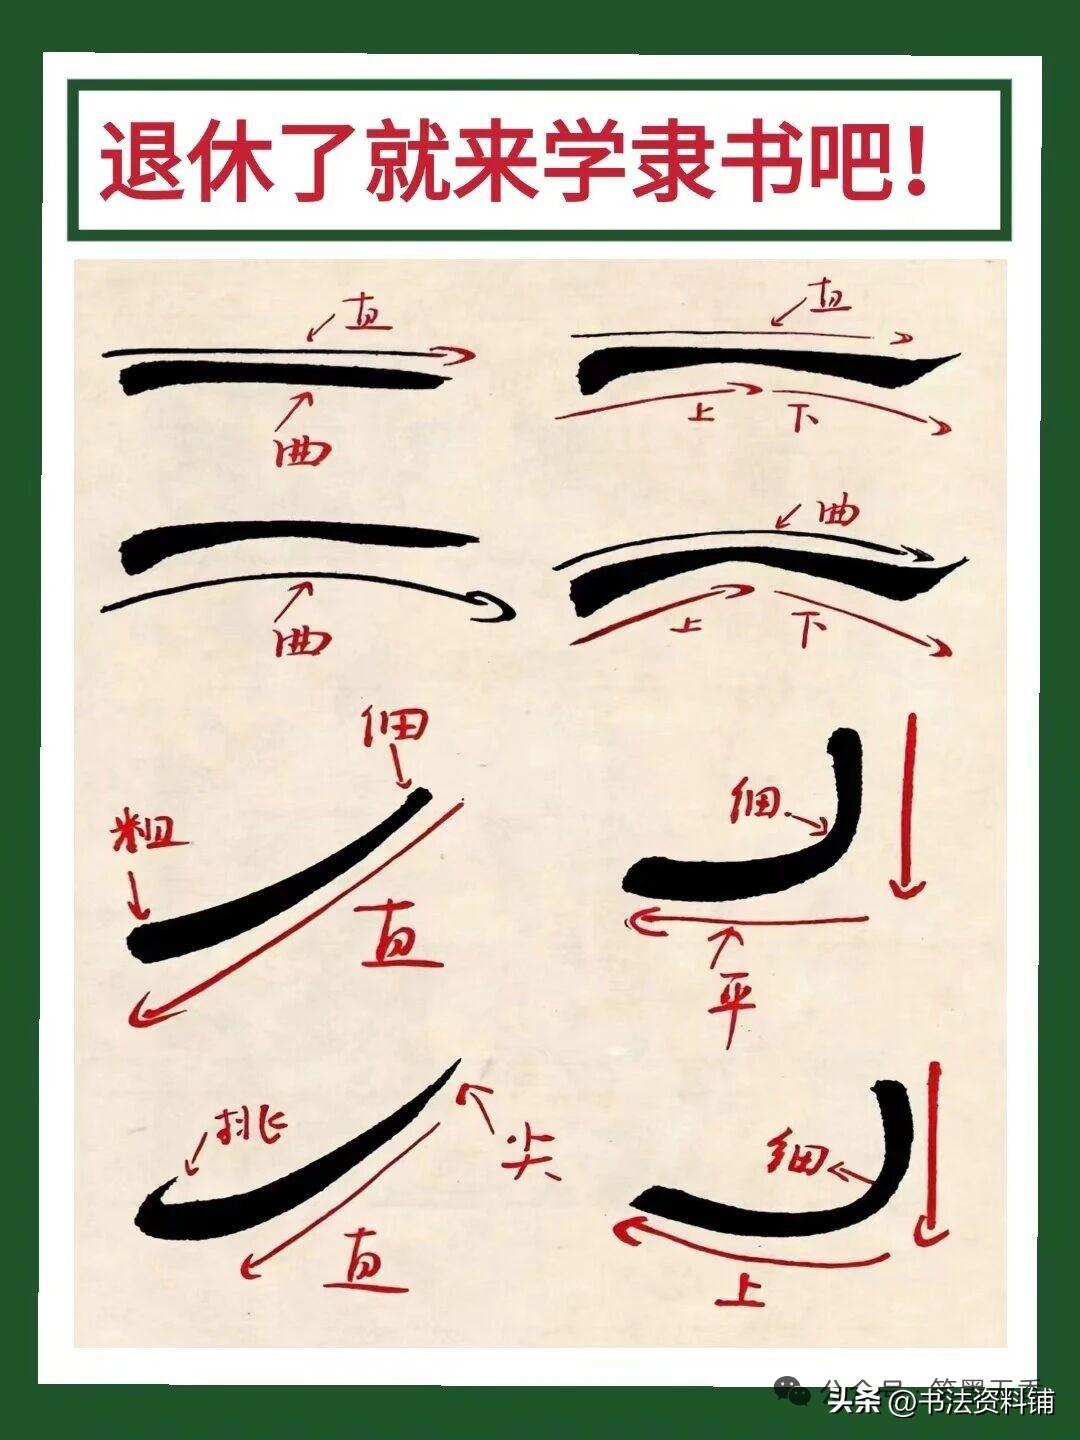 退休了就来学隶书吧!
直
直
曲
上 下
曲
曲
上 下
细
粗
细
直
平
挑
尖
细
直
上
头条 @书法资料铺